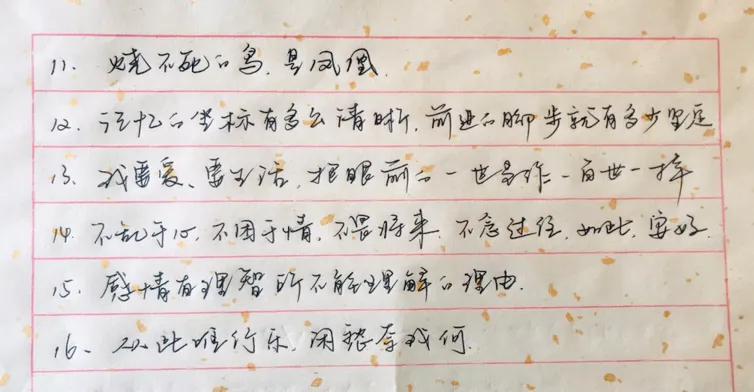 11. 烧不死的鸟,是凤凰.
12. 记忆的坐标有多么清晰,前进的脚步就有多少坚定
13. 我要爱、要生活,把眼前的一世当作一百世一样
14. 不乱于心,不困于情,不畏将来,不念过往,如此,安好.
15. 感情有理智所不能理解的理由.
16. 从此唯行乐,闲愁奈我何.